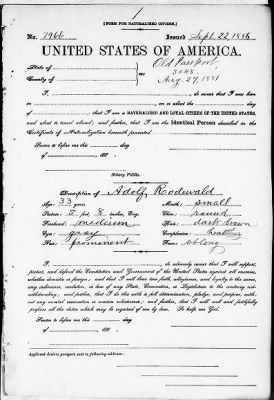 1
[FORM FOR NATURALIZED CITIZEN.]
No. 7966 Issued Sept. 22, 1886
UNITED STATES OF AMERICA.
State of
County of
ss:
Old Passport,
Aug. 27, 1881
I do swear that I was born
in on or about the day
of , that I am a NATURALIZED AND LOYAL CITIZEN OF THE UNITED STATES,
and about to travel abroad; and further, that I am the Identical Person described in the
Certificate of Naturalization herewith presented
Sworn to before me this day
of , 188 .
Notary Public.
Description of Adolf Rodewald
Age: 33 years Mouth: small
Stature: 5 feet, 8 inches, Eng. Chin: round
Forehead: medium Hair: dark brown
Eyes: gray Complexion: healthy
Nose: prominent Face: oblong
I, , do solemnly swear that I will support,
protect, and defend the Constitution and Government of the United States against all enemies,
whether domestic or foreign; and that I will bear true faith, allegiance, and loyalty to the same,
any ordinance, resolution, or law of any State, Convention, or Legislature to the contrary not-
withstanding; and further, that I do this with a full determination, pledge, and purpose, with-
out any mental reservation or evasion whatsoever; and further, that I will well and faithfully
perform all the duties which may be required of me by law. So help me God.
Sworn to before me this day
of , 188 .
Applicant desires passport sent to following address: